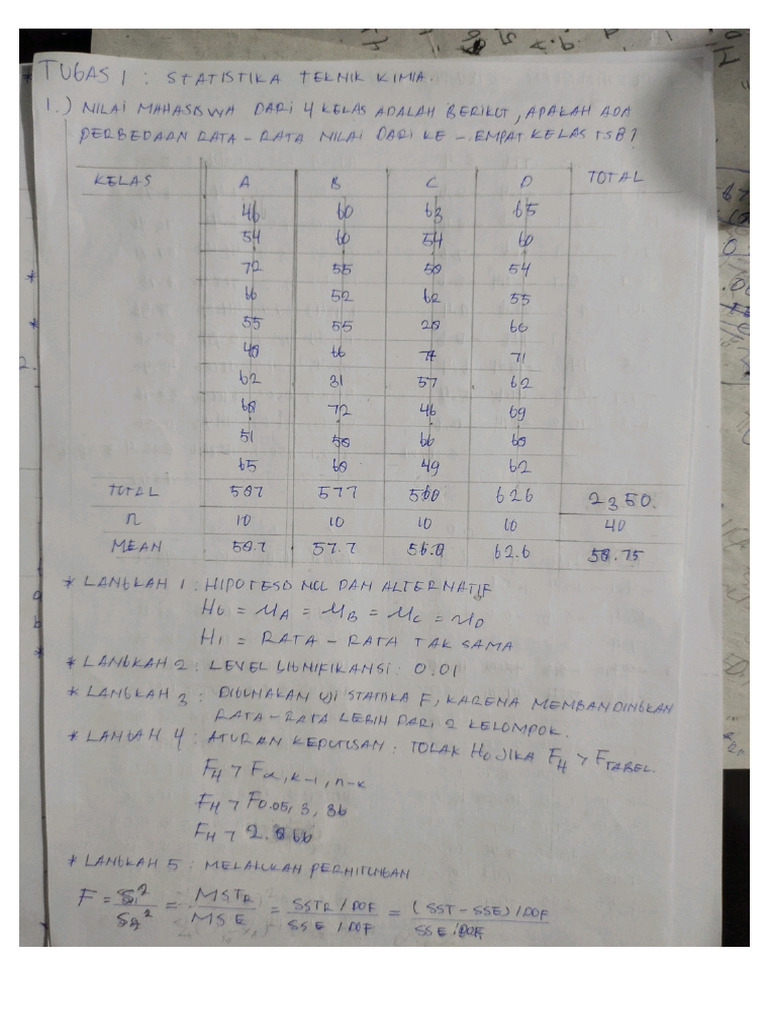 * TUGAS 1 : STATISTIKA TEKNIK KIMIA.
1.) NILAI MAHASISWA DARI 4 KELAS ADALAH BERIKUT, APAKAH ADA
PERBEDAAN RATA - RATA NILAI DARI KE - EMPAT KELAS TSB?
KELAS A B C D TOTAL
46 60 63 65
54 60 54 60
72 55 50 54
66 52 62 55
55 55 28 68
48 66 77 71
62 31 57 62
68 72 46 69
51 58 66 60
65 68 49 62
TOTAL 587 577 560 626 2350.
n 10 10 10 10 40
MEAN 58.7 57.7 56.0 62.6 58.75
* LANGKAH 1 : HIPOTESIS NOL DAN ALTERNATIF
H0 = μA = μB = μC = μD
H1 = RATA - RATA TAK SAMA
* LANGKAH 2 : LEVEL SIGNIFIKANSI : 0.01
* LANGKAH 3 : DIGUNAKAN UJI STATIKA F, KARENA MEMBANDINGKAN
RATA - RATA LEBIH DARI 2 KELOMPOK.
* LANGAH 4 : ATURAN KEPUTUSAN : TOLAK H0 JIKA FH > FTABEL.
FH > Fα, k-1, n-k
FH > F0.05, 3, 36
FH > 2.866
* LANGKAH 5 : MELAKUKAN PERHITUNGAN
F = S1² / S2² = MSTR / MSE = SSTR / DOF / SSE / DOF = (SST - SSE) / DOF / SSE / DOF